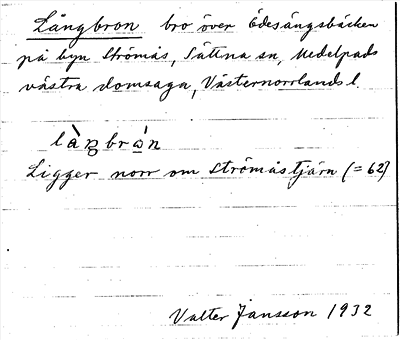 Långbron bro över Ödesängsbäcken
på byn Strömås, Sättna sn, Medelpads
västra domsaga, Västernorrlands l.
Ligger norr om Strömåstjärn (= 62)
Valter Jansson 1932